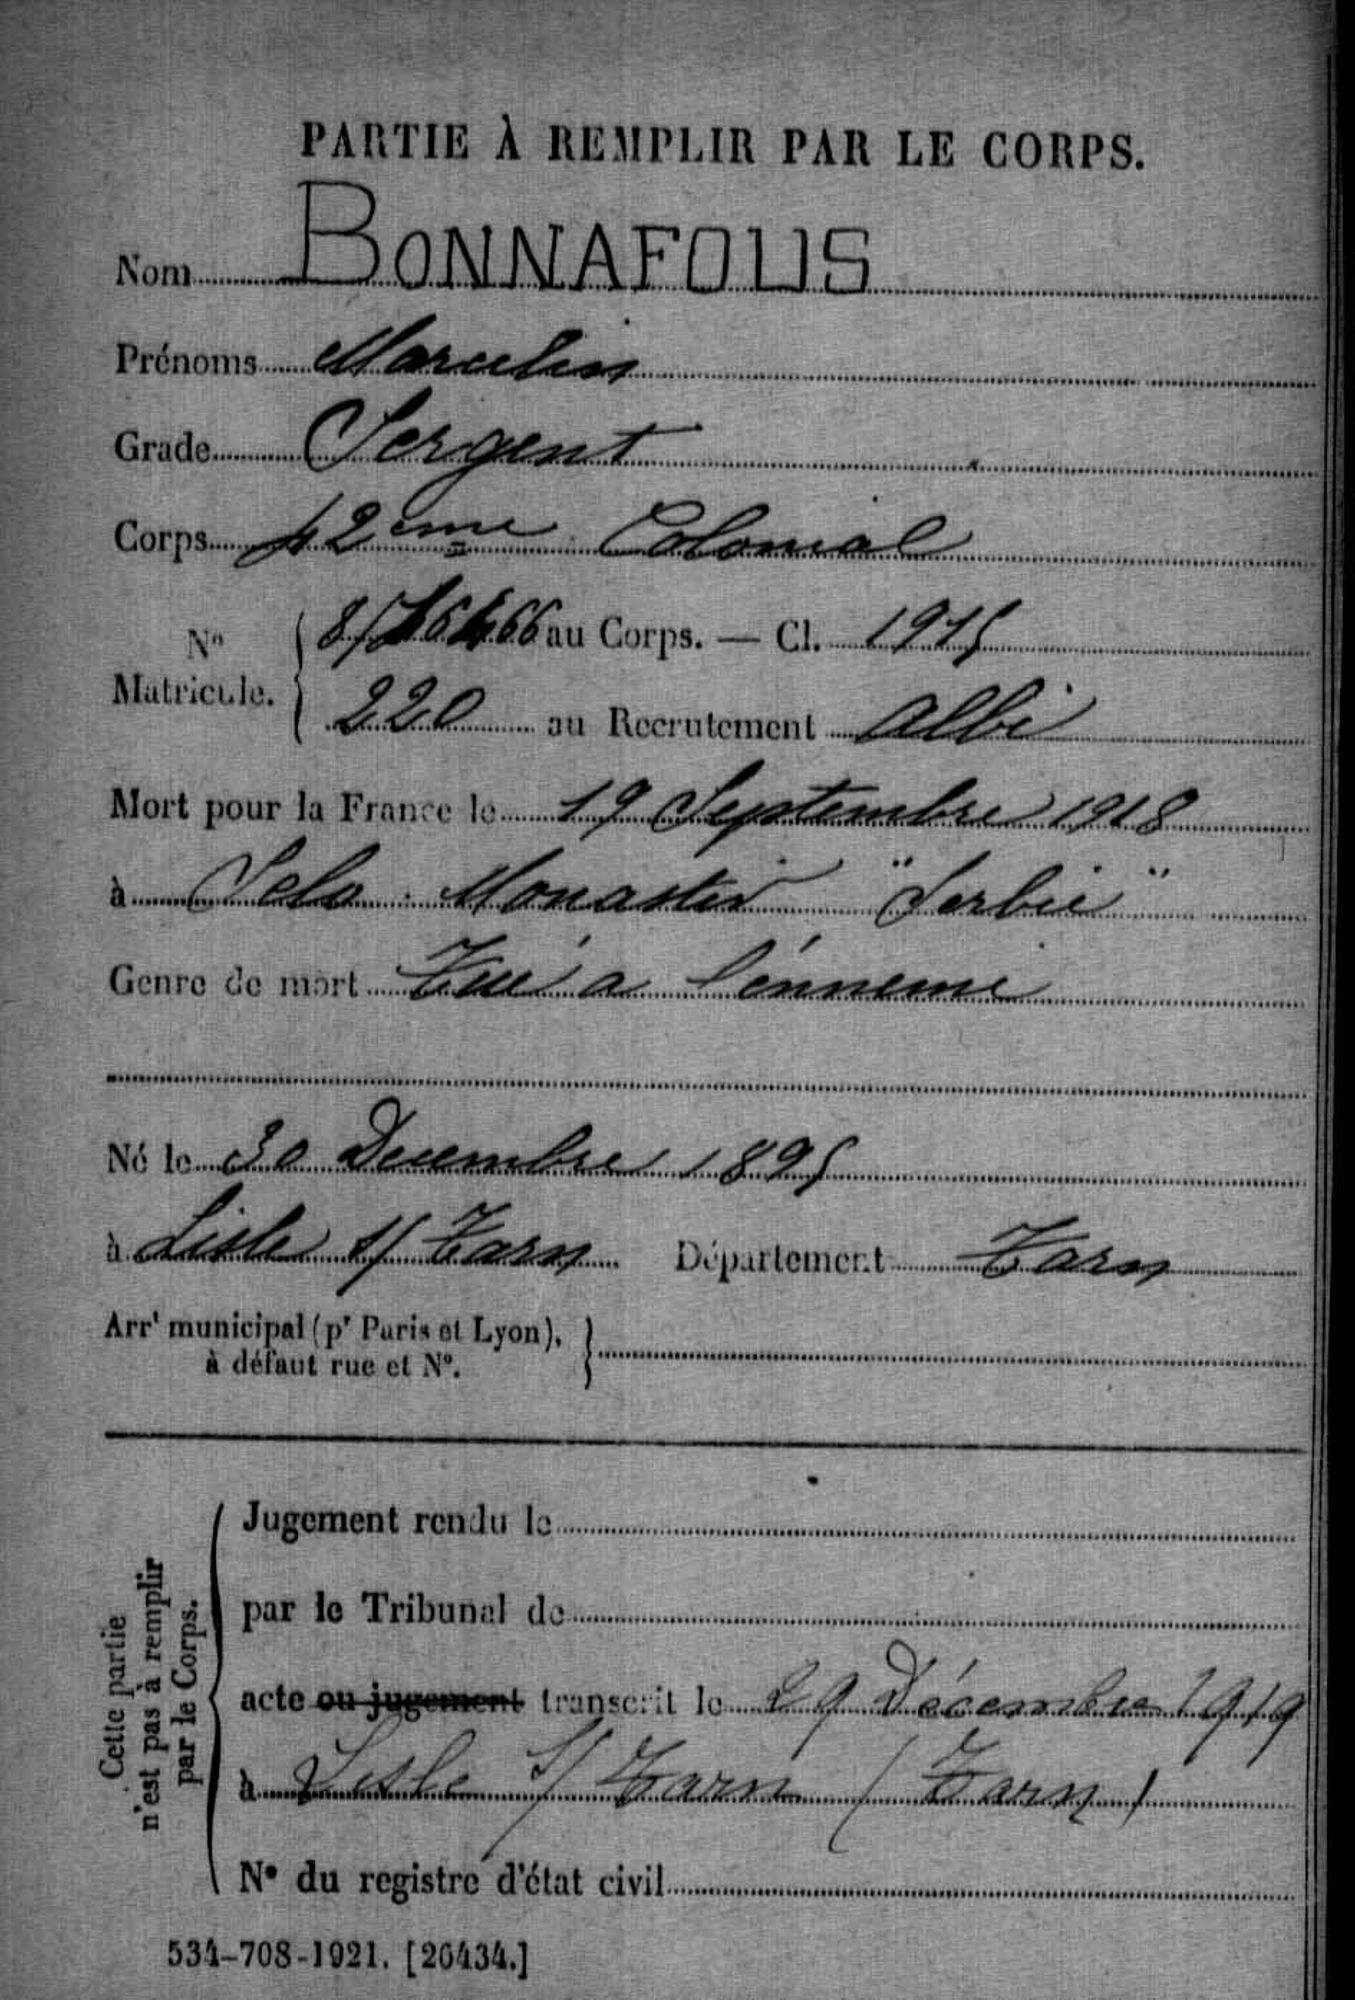 PARTIE À REMPLIR PAR LE CORPS.
Nom BONNAFOUS
Prénoms Marcelin
Grade Sergent
Corps 42eme Colonial
No Matricule. au Corps. — Cl. 1915
220 au Recrutement Albi
Mort pour la France le 19 Septembre 1918
à Selo Monastir "Serbie"
Genre de mort Tué a l'énnemi
Né le 30 Decembre 1895
à Lisle s/ Tarn Département Tarn
Arrt municipal (pr Paris et Lyon),
à défaut rue et No.
Cette partie
n'est pas à remplir
par le Corps.
Jugement rendu le
par le Tribunal de
acte ou jugement transcrit le 29 Décembre 1919
à Lisle s/ Tarn (Tarn)
No du registre d'état civil
534-708-1921. [26434.]